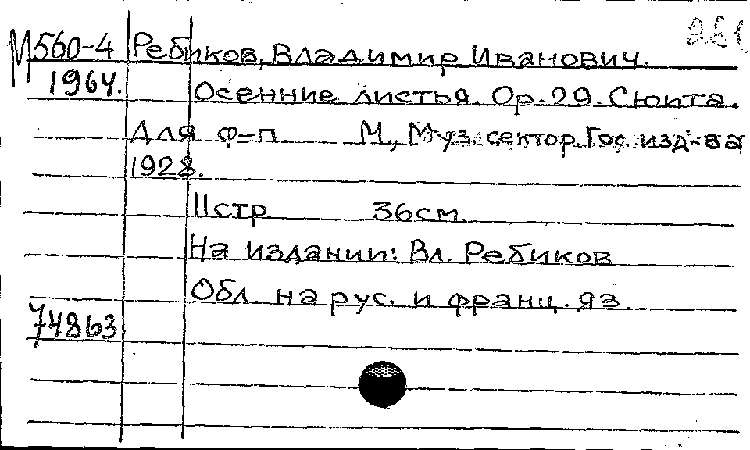 М560-4 Ребиков, Владимир Иванович.
1964. Осенние листья. Ор. 29. Сюита.
Для ф-п М., Муз. сектор Гос. изд-ва
1928.
11стр 36см.
На издании: Вл. Ребиков
Обл. на рус. и франц. яз.
74863